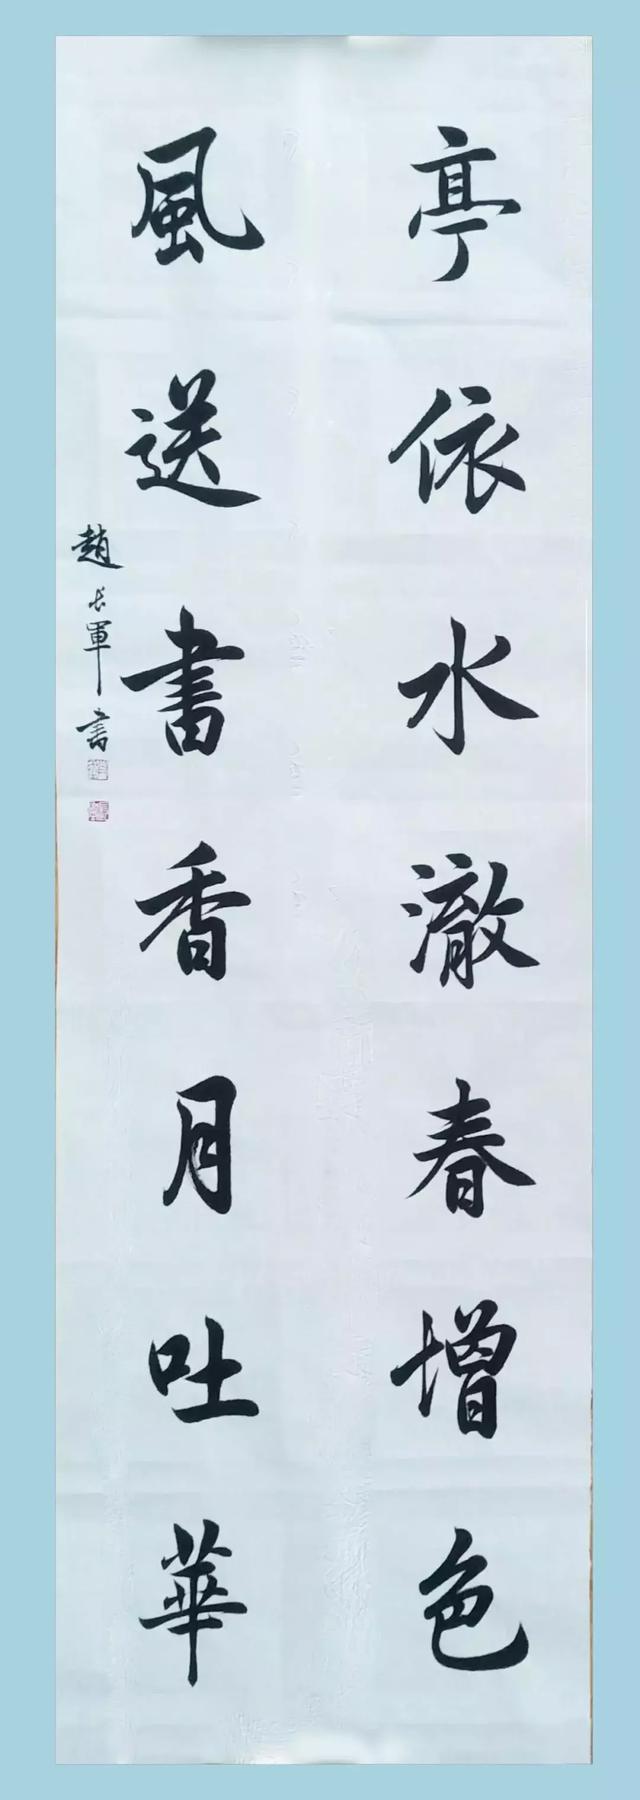 亭依水澈春增色
風送書香月吐華
趙长軍书